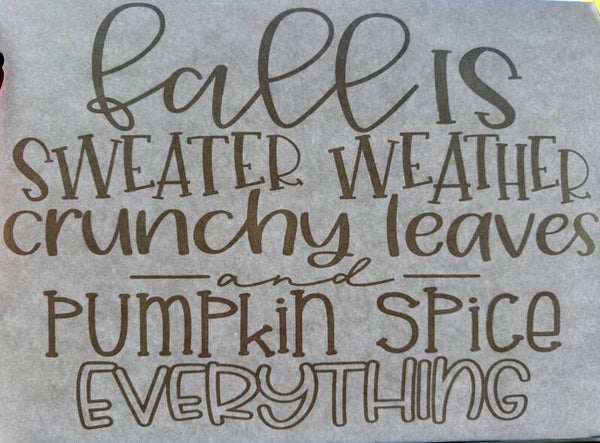 fall is
SWEATER WEATHER
crunchy leaves
and
PUMPKIN SPICE
EVERYTHING